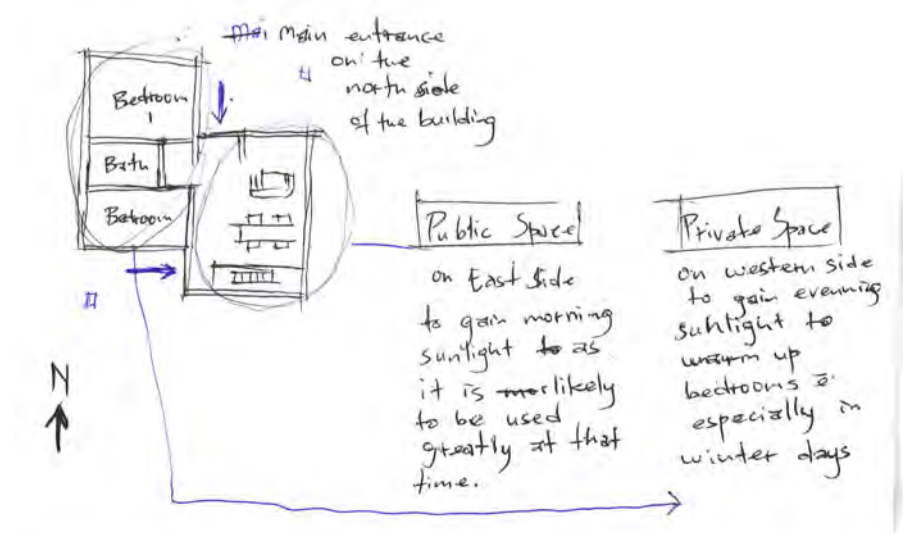 Main entrance
on the
north side
of the building
Bedroom
1
Bath
Betroom
Public Space
on East Side
to gain morning
sunlight as
it is likely
to be used
greatly at that
time.
Private Space
on western side
to gain evenning
suhlight to
warm up
bedrooms
especially in
winter days
N